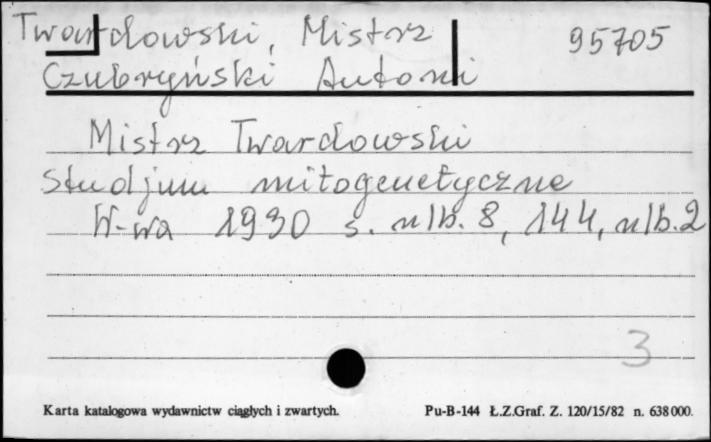 Twardowski, Mistrz 95705
Czubryński Antoni
Mistrz Twardowski
Studjum mitogenetyczne
W-wa 1930 s. nlb. 8, 144, nlb. 2
3
Karta katalogowa wydawnictw ciągłych i zwartych. Pu-B-144 Ł.Z.Graf. Z. 120/15/82 n. 638000.